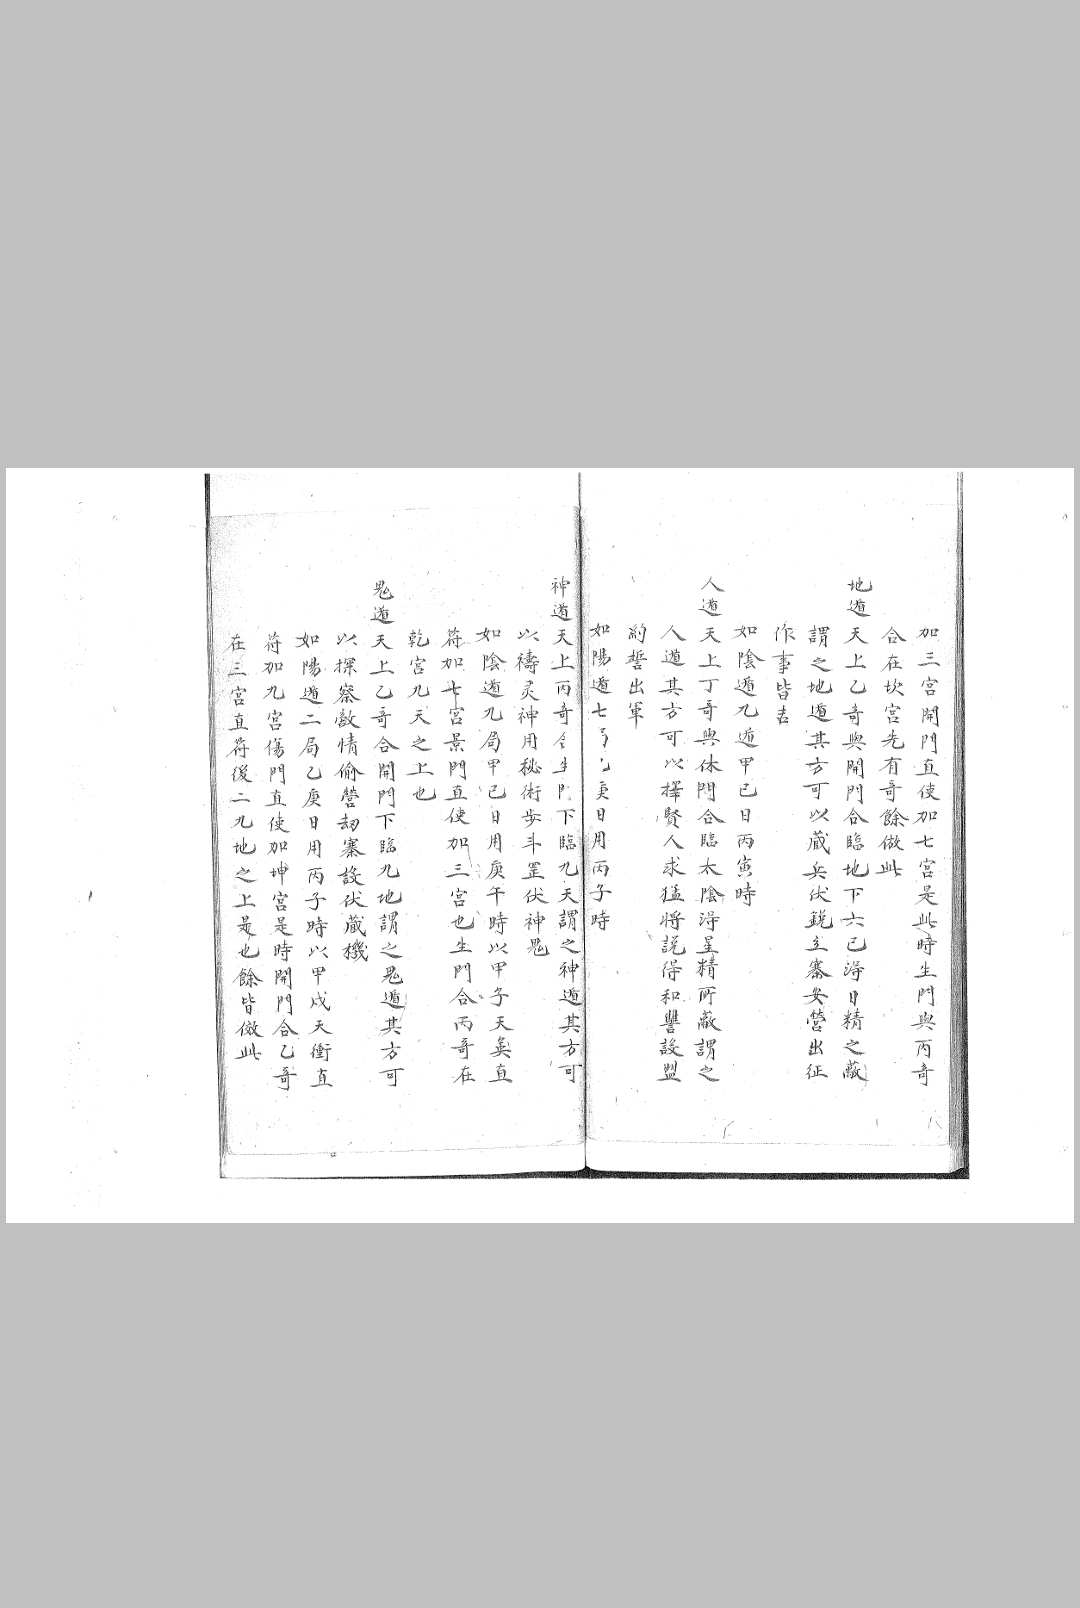 加三宫開門直使加七宫是此時生門與丙竒
合在坎宫先有竒餘倣此
地遁天上乙竒與開門合臨地下六己得日精之蔽
謂之地遁其方可以蔵兵伏鋭立寨安營出征
作事皆吉
如陰遁九遁甲己日丙寅時
人遁天上丁竒與休門合臨太陰得星精所蔽謂之
人遁其方可以擇賢人求猛將説得和讐設盟
約誓出軍
如陽遁七 庚日用丙子時
神遁天上丙竒合生門下臨九天謂之神遁其方可
以禱灵神用秘術步斗罡伏神鬼
如陰遁九局甲己日用庚午時以甲子天英直
符加七宫景門直使加三宫也生門合丙竒在
乾宫九天之上也
鬼遁天上乙竒合開門下臨九地謂之鬼遁其方可
以探察敵情偷營刼寨設伏蔵機
如陽遁二局乙庚日用丙子時以甲戌天衝直
符加九宫傷門直使加坤宫是時開門合乙竒
在三宫直符後二九地之上是也餘皆倣此